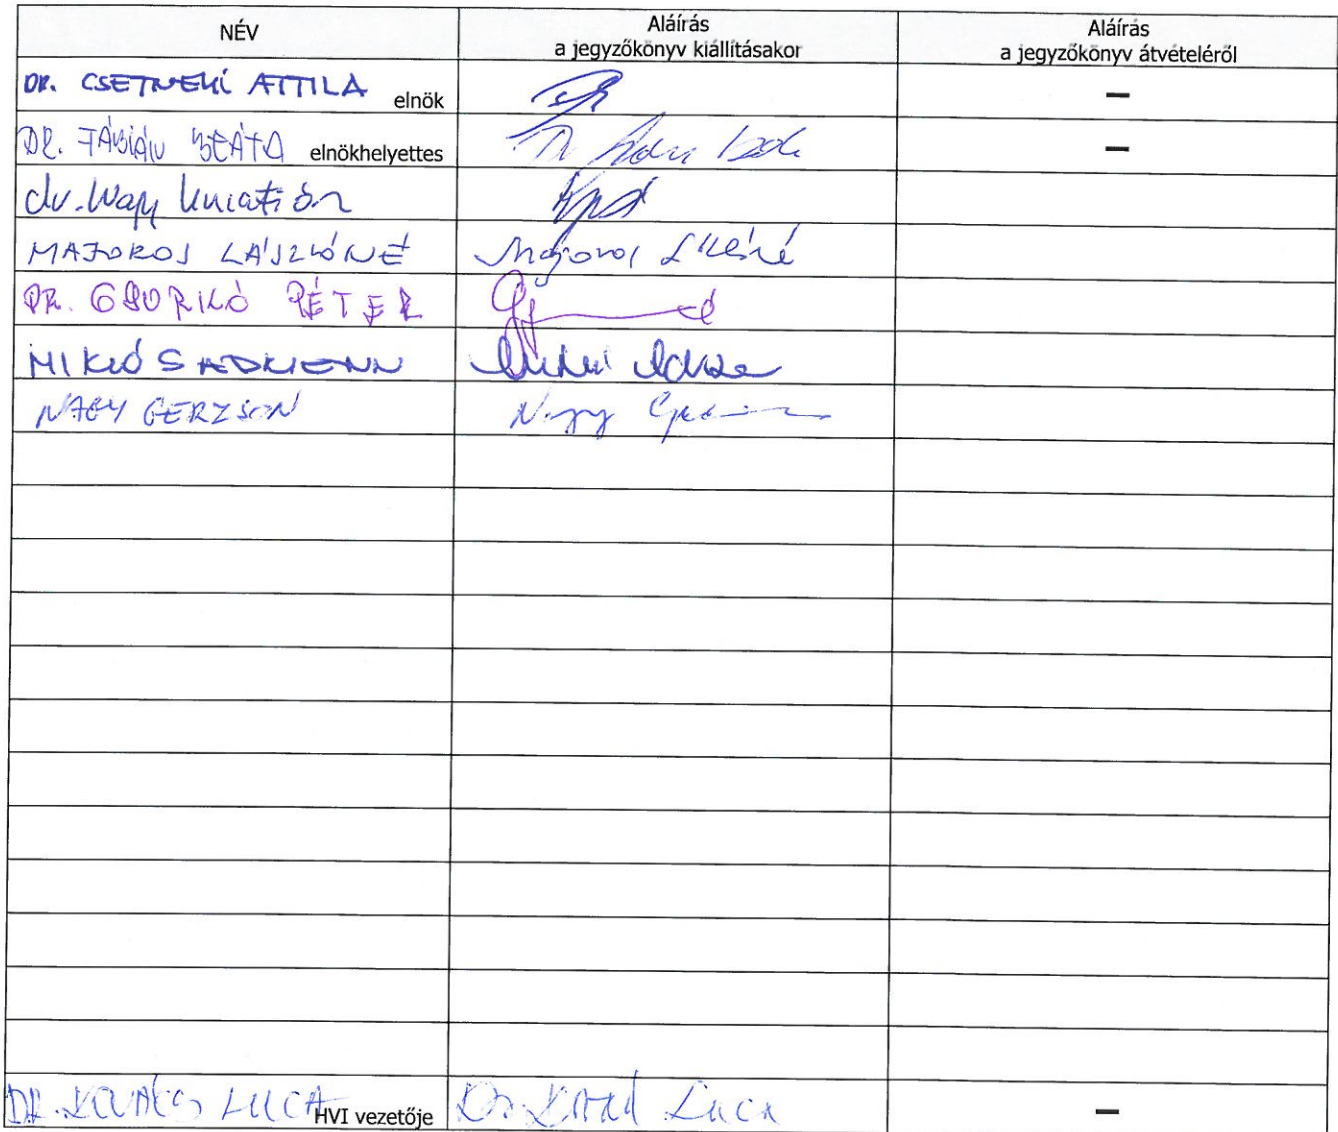 NÉV
Aláírás
a jegyzőkönyv kiállításakor
Aláírás
a jegyzőkönyv átvételéről
DR. CSETNEKI ATTILA elnök
–
DR. FÁBIÁN BEÁTA elnökhelyettes
–
dr. Nagy
MAJOROS LÁSZLÓNÉ Majoros Lászlóné
DR. PÉTER
MIKLÓS ADRIENN
NAGY GERZSON Nagy
DR. KOVÁCS LUCA HVI vezetője Dr. Kovács Luca –